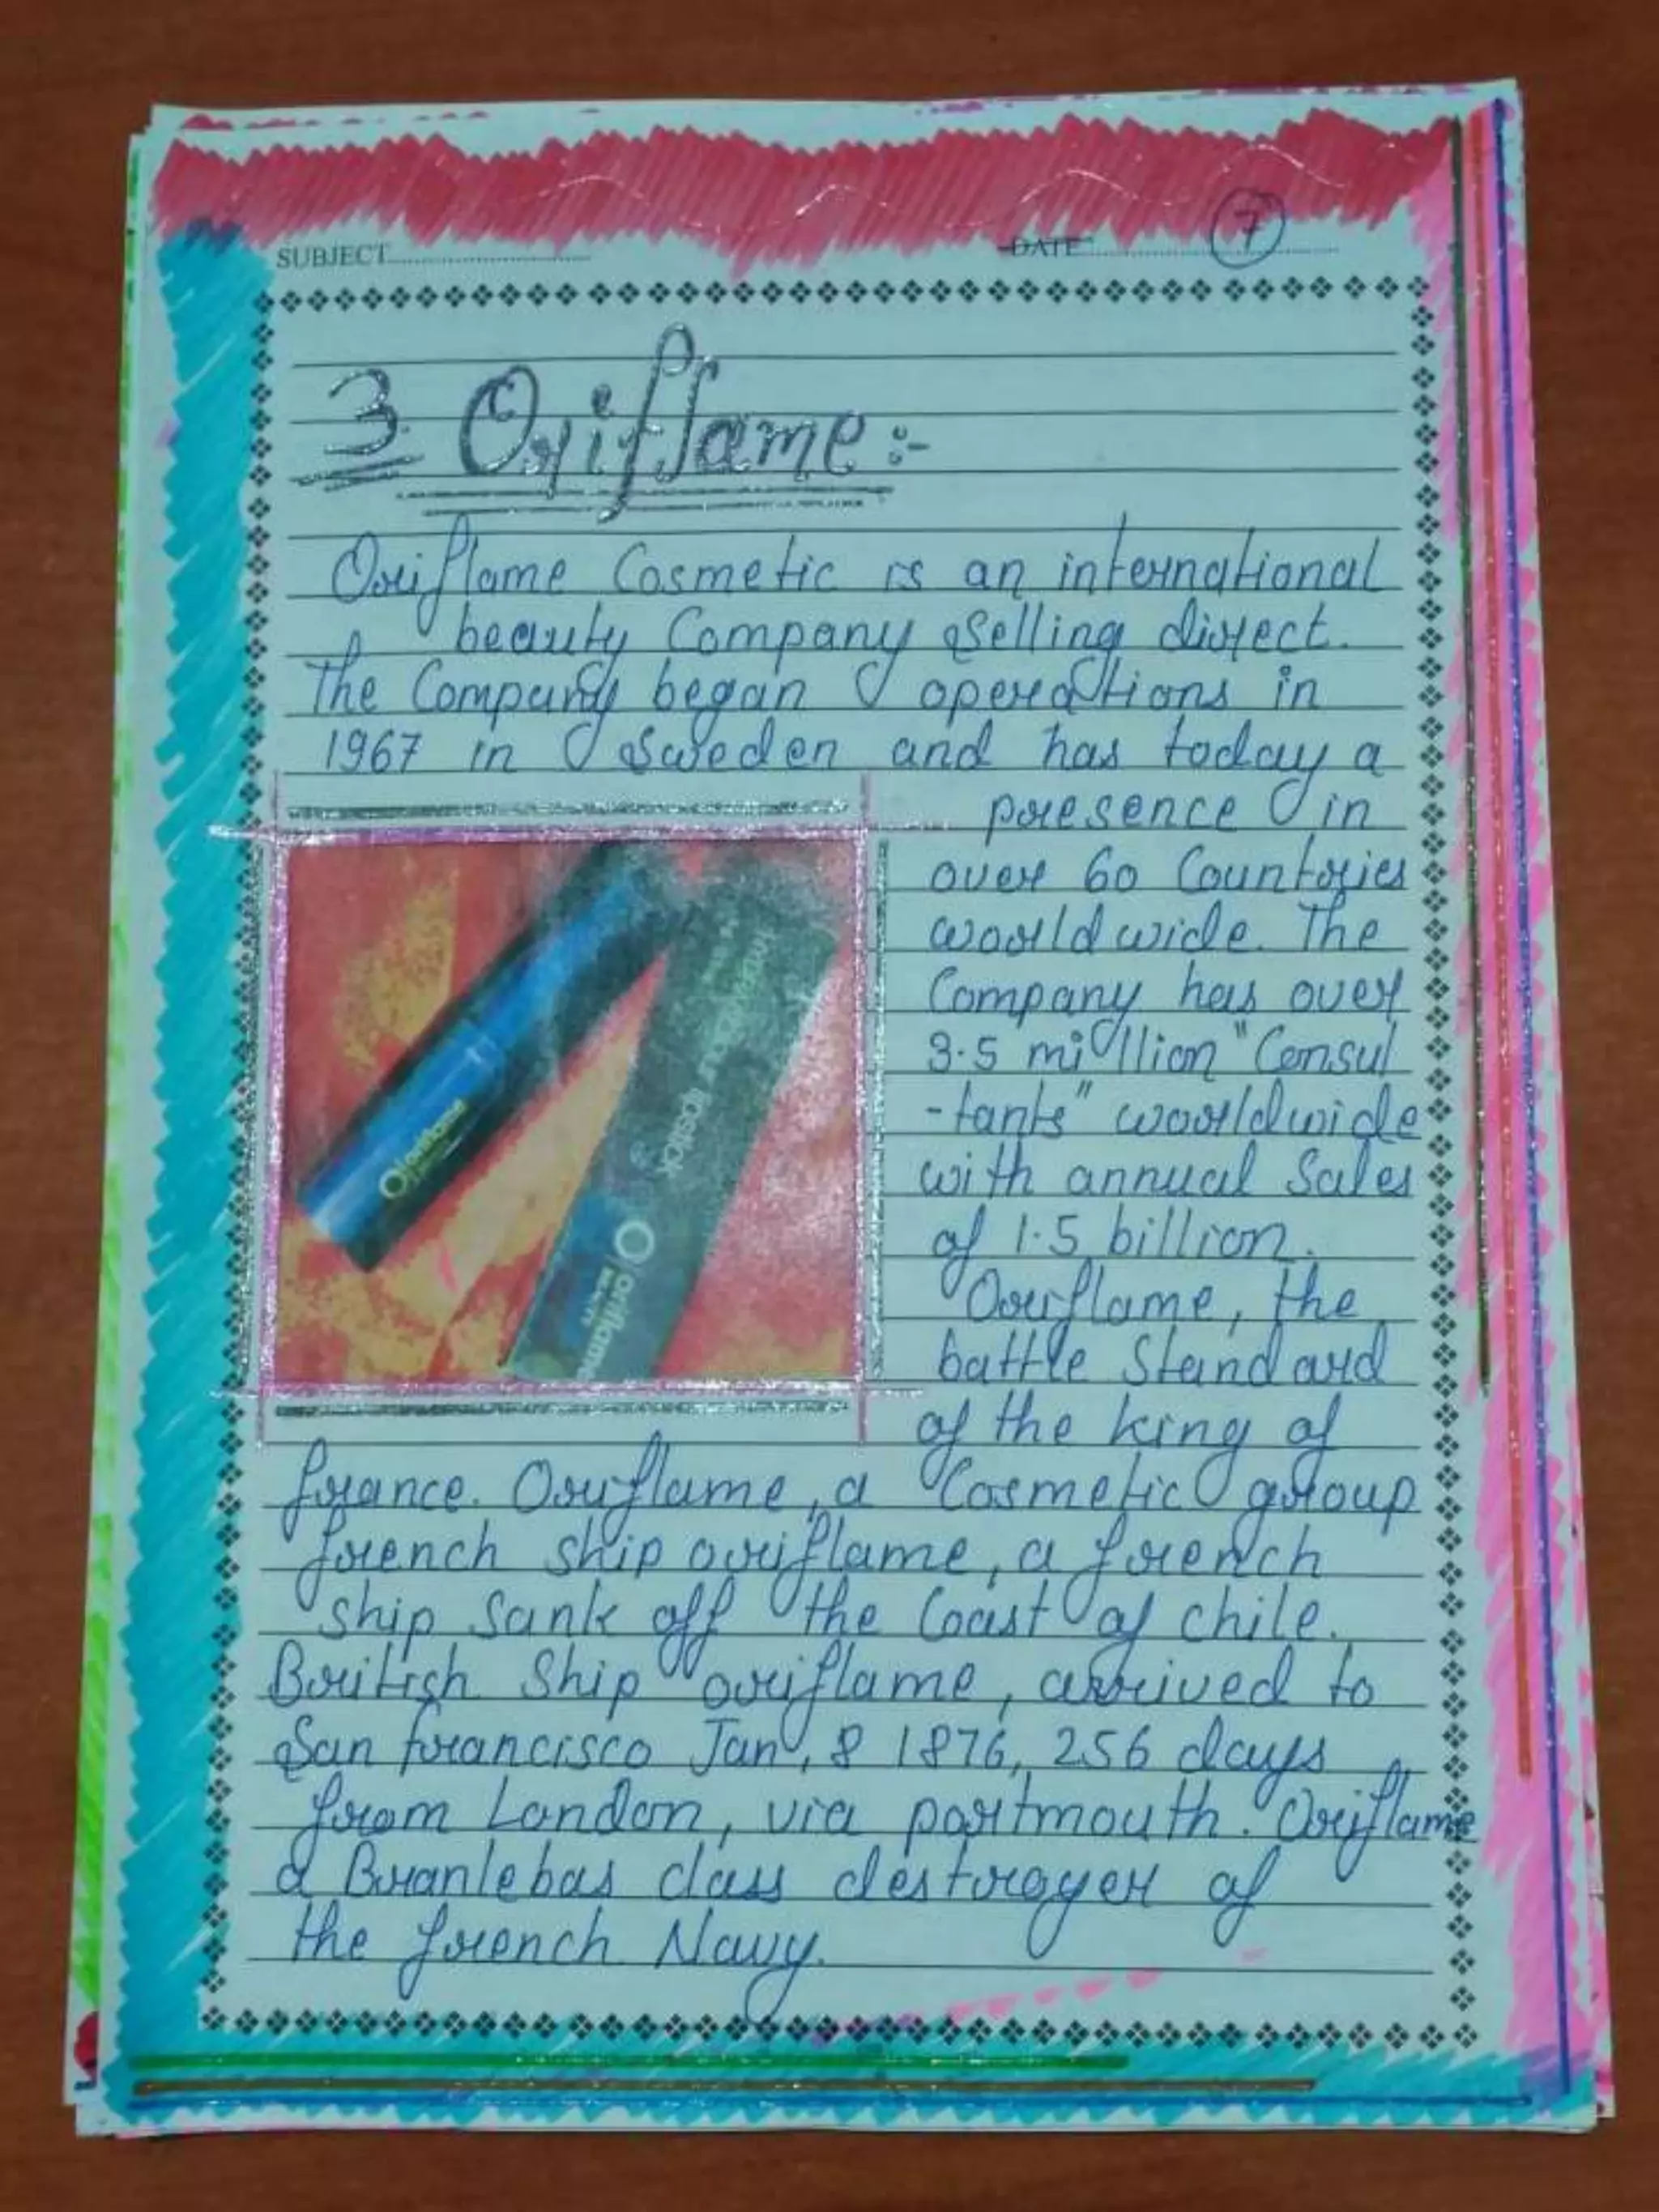 SUBJECT
DATE 7
3. Oriflame :-
Oriflame Cosmetic is an international
beauty Company selling direct.
The Company began operations in
1967 in Sweden and has today a
presence in
over 60 Countries
world wide. The
Company has over
3.5 million "Consul
-tants" worldwide
with annual Sales
of 1.5 billion.
Oriflame, the
battle Standard
of the king of
france. Oriflame, a Cosmetic group
french ship oriflame, a french
ship sank off the Coast of chile.
British Ship oriflame, arrived to
San francisco Jan, 8 1876, 256 days
from London, via portmouth. Oriflame
a Branlebas class destroyer of
the french Navy.
Oriflame
lipstick
Oriflame